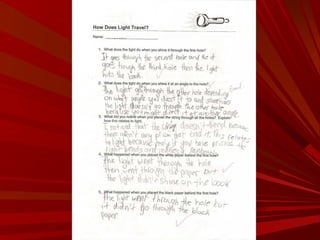 How Does Light Travel?
Name:
1. What does the light do when you shine it through the first hole?
It goes through the second hole and then it
goes through the third hole then the light
hits the book.
2. What does the light do when you shine it at an angle to the hole?
The light goes through the other hole depending
on what angle you direct it to and sometimes
the light doesn't go through the other hole
because you might direct it at a
3. What did you notice when you placed the string through all the holes? Explain
how this relates to light.
I noticed that the string doesn't bend because
there
to light because
light bends and makes a
4. What happened when you placed the white paper behind the first hole?
The light went through the hole
then went through the paper but
the light didn't shine on the book
5. What happened when you placed the black paper behind the first hole?
The light went through the hole but
it didn't go through the black
paper